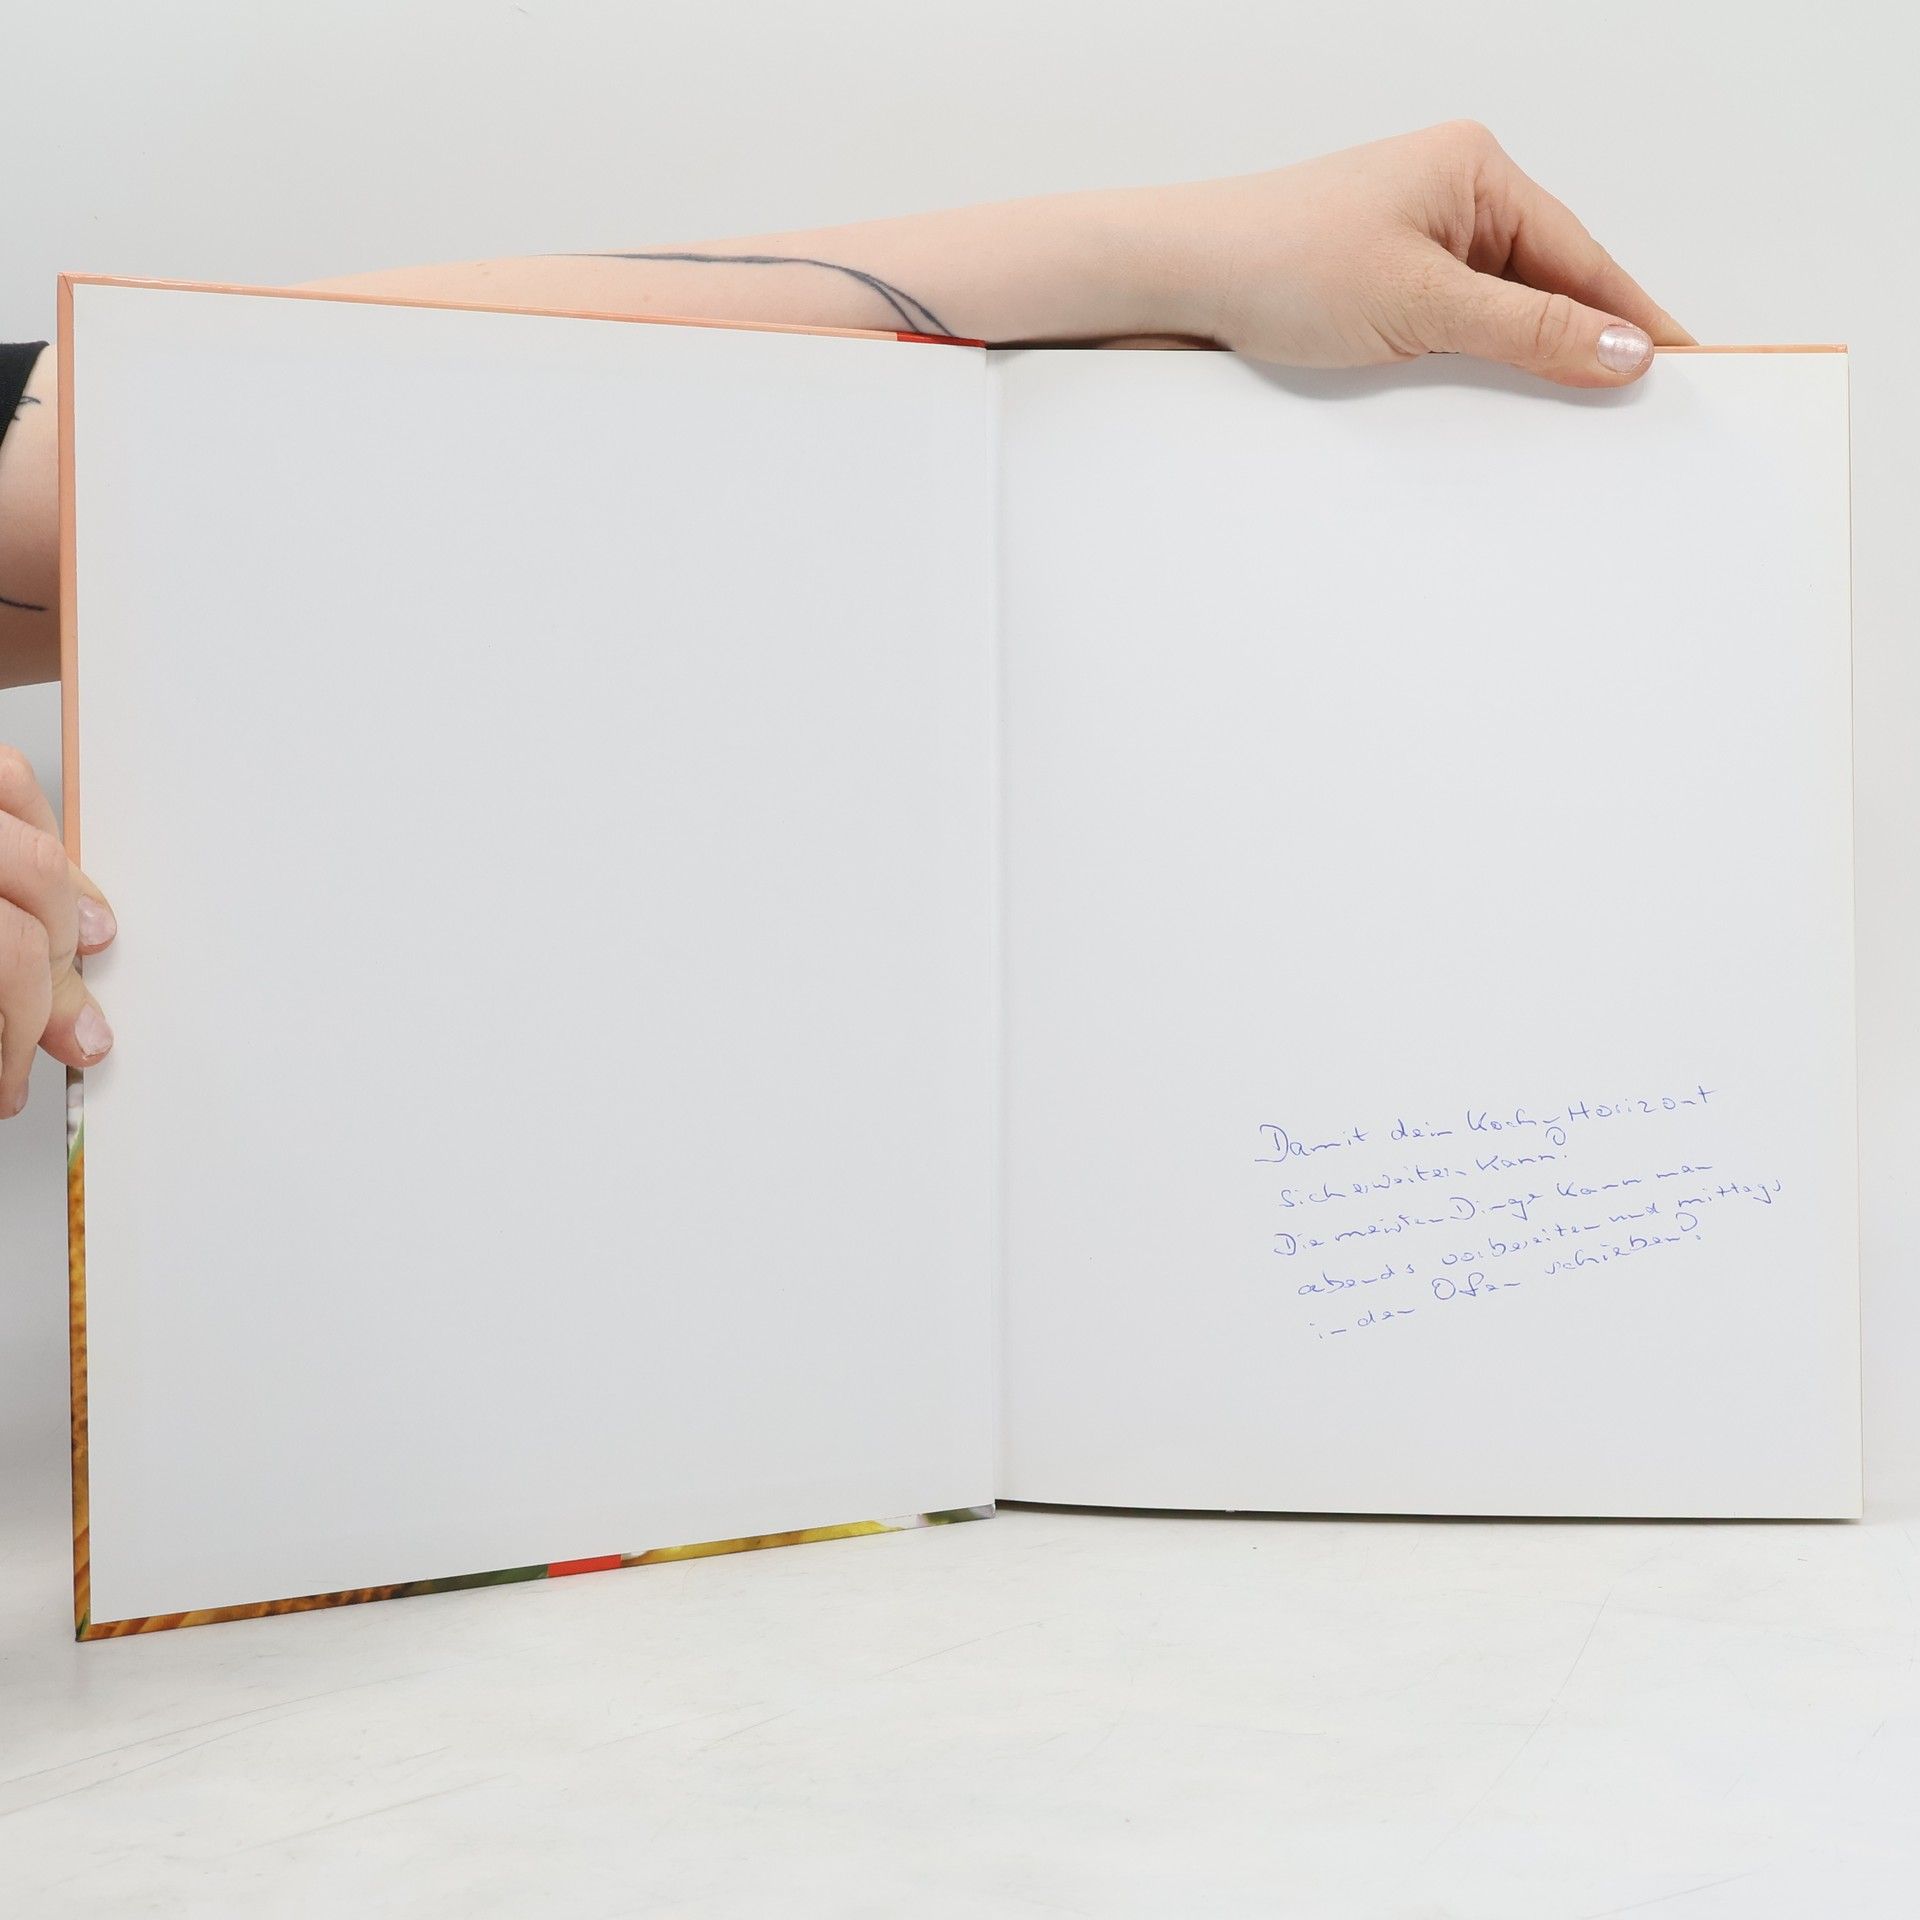 Damit dein Koch-Horizont
sich erweitern kann!
Die meisten Dinge kann man
abends vorbereiten und mittags
in den Ofen schieben!